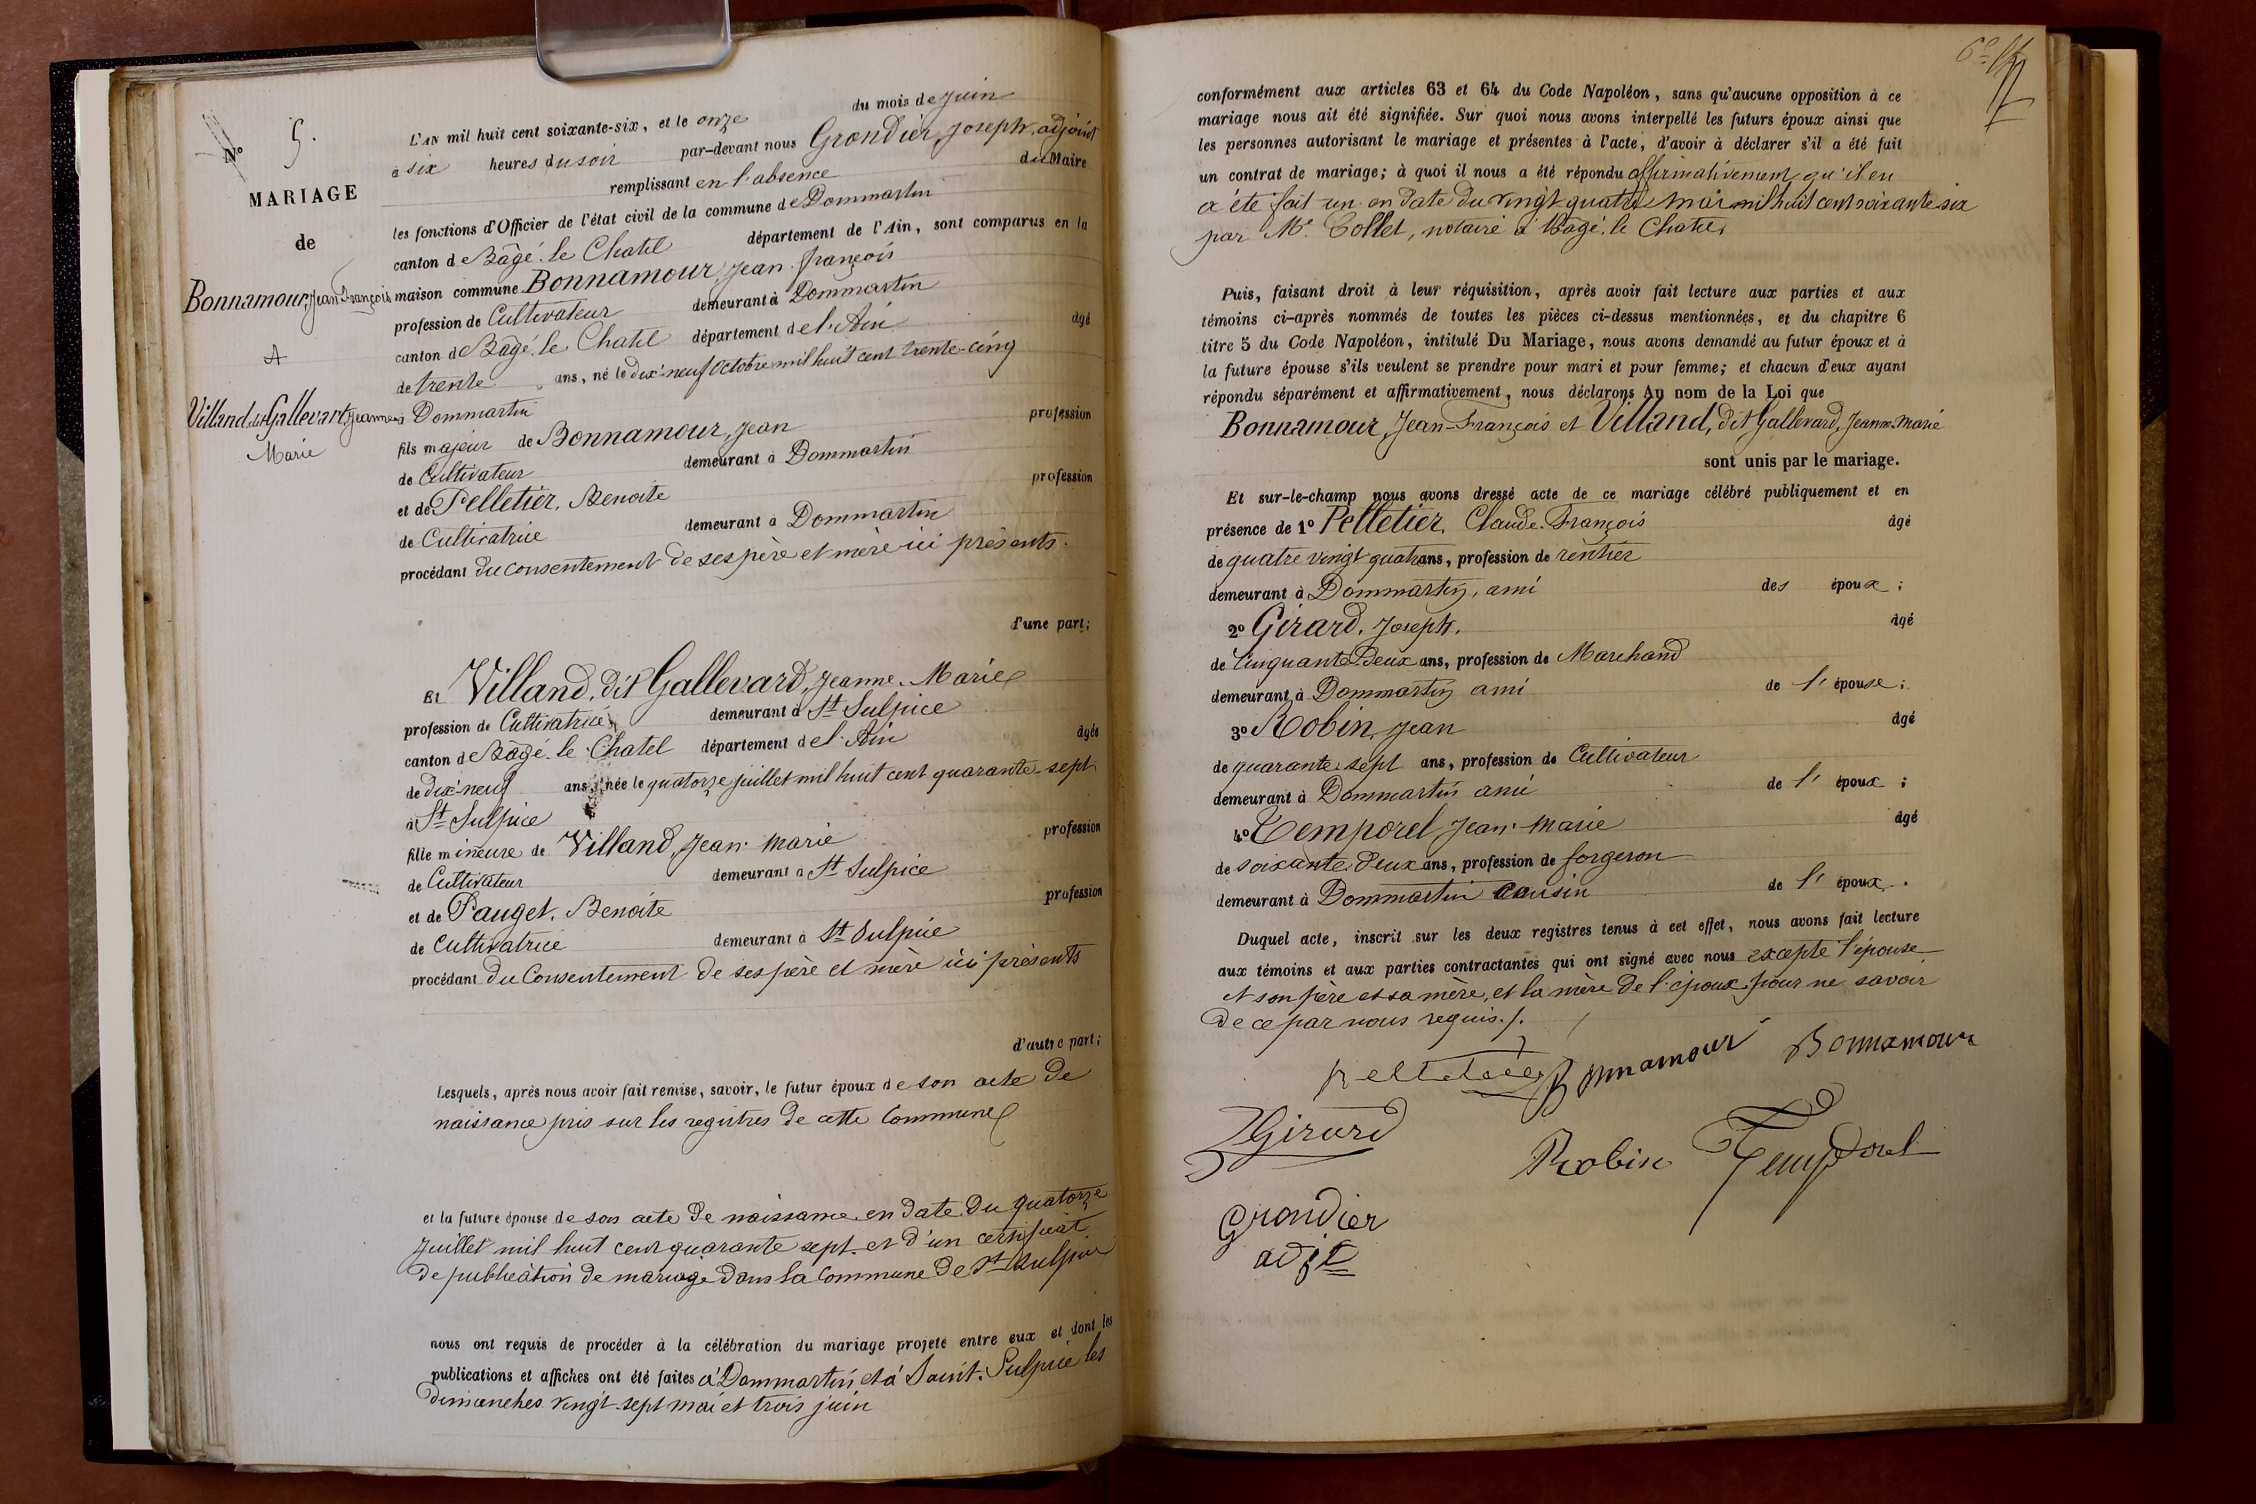 N° 5.
MARIAGE
de
Bonnamour, Jean François
et
Villand, dit Gallevard, Jeanne
Marie
L'AN mil huit cent soixante-six, et le onze du mois de juin
à six heures du soir par-devant nous Grondier, Joseph, adjoint
remplissant en l'absence du Maire
les fonctions d'Officier de l'état civil de la commune de Dommartin
canton de Bâgé-le Chatel département de l'Ain, sont comparus en la
maison commune Bonnamour, Jean-françois
profession de Cultivateur demeurant à Dommartin
canton de Bâgé-le Chatel département de l'Ain âgé
de trente ans, né le dix-neuf Octobre mil huit cent trente-cinq
à Dommartin
fils majeur de Bonnamour, Jean profession
de Cultivateur demeurant à Dommartin
et de Pelletier, Benoite profession
de Cultivatrice demeurant à Dommartin
procédant du consentement de ses père et mère ici présents.
d'une part;
Et Villand, dit Gallevard, Jeanne-Marie
profession de Cultivatrice demeurant à St Sulpice
canton de Bâgé-le-Chatel département de l'Ain âgée
de dix-neuf ans, née le quatorze juillet mil huit cent quarante-sept
à St Sulpice
fille mineure de Villand, Jean-Marie profession
de Cultivateur demeurant à St Sulpice
et de Pauget, Benoite profession
de Cultivatrice demeurant à St Sulpice
procédant du Consentement de ses père et mère ici présents
d'autre part;
Lesquels, après nous avoir fait remise, savoir, le futur époux de son acte de
naissance pris sur les registres de cette Commune
et la future épouse de son acte de naissance en date du quatorze
Juillet mil huit cent quarante sept et d'un certificat
de publication de mariage dans la Commune de St Sulpice
nous ont requis de procéder à la célébration du mariage projeté entre eux et dont les
publications et affiches ont été faites à Dommartin et à Saint-Sulpice les
dimanches vingt-sept mai et trois juin
conformément aux articles 63 et 64 du Code Napoléon, sans qu'aucune opposition à ce
mariage nous ait été signifiée. Sur quoi nous avons interpellé les futurs époux ainsi que
les personnes autorisant le mariage et présentes à l'acte, d'avoir à déclarer s'il a été fait
un contrat de mariage; à quoi il nous a été répondu affirmativement qu'il en
a été fait un en date du vingt quatre mai mil huit cent soixante six
par Me Collet, notaire à Bâgé-le Chatel
Puis, faisant droit à leur réquisition, après avoir fait lecture aux parties et aux
témoins ci-après nommés de toutes les pièces ci-dessus mentionnées, et du chapitre 6
titre 5 du Code Napoléon, intitulé Du Mariage, nous avons demandé au futur époux et à
la future épouse s'ils veulent se prendre pour mari et pour femme; et chacun d'eux ayant
répondu séparément et affirmativement, nous déclarons Au nom de la Loi que
Bonnamour, Jean-François et Villand, dit Gallevard, Jeanne-Marie
sont unis par le mariage.
Et sur-le-champ nous avons dressé acte de ce mariage célébré publiquement et en
présence de 1° Pelletier, Claude-François âgé
de quatre vingt quatre ans, profession de rentier
demeurant à Dommartin, ami des époux;
2° Girard, Joseph. âgé
de Cinquante deux ans, profession de Marchand
demeurant à Dommartin ami de l'épouse;
3° Robin, Jean âgé
de quarante-sept ans, profession de Cultivateur
demeurant à Dommartin ami de l'époux;
4° Temporel, Jean-Marie âgé
de soixante deux ans, profession de forgeron
demeurant à Dommartin cousin de l'époux.
Duquel acte, inscrit sur les deux registres tenus à cet effet, nous avons fait lecture
aux témoins et aux parties contractantes qui ont signé avec nous excepté l'épouse
et son père et sa mère, et la mère de l'époux pour ne savoir
de ce par nous requis./.
Pelletier Bonnamour Bonnamour
Girard
Robin Temporel
Grondier
adjt